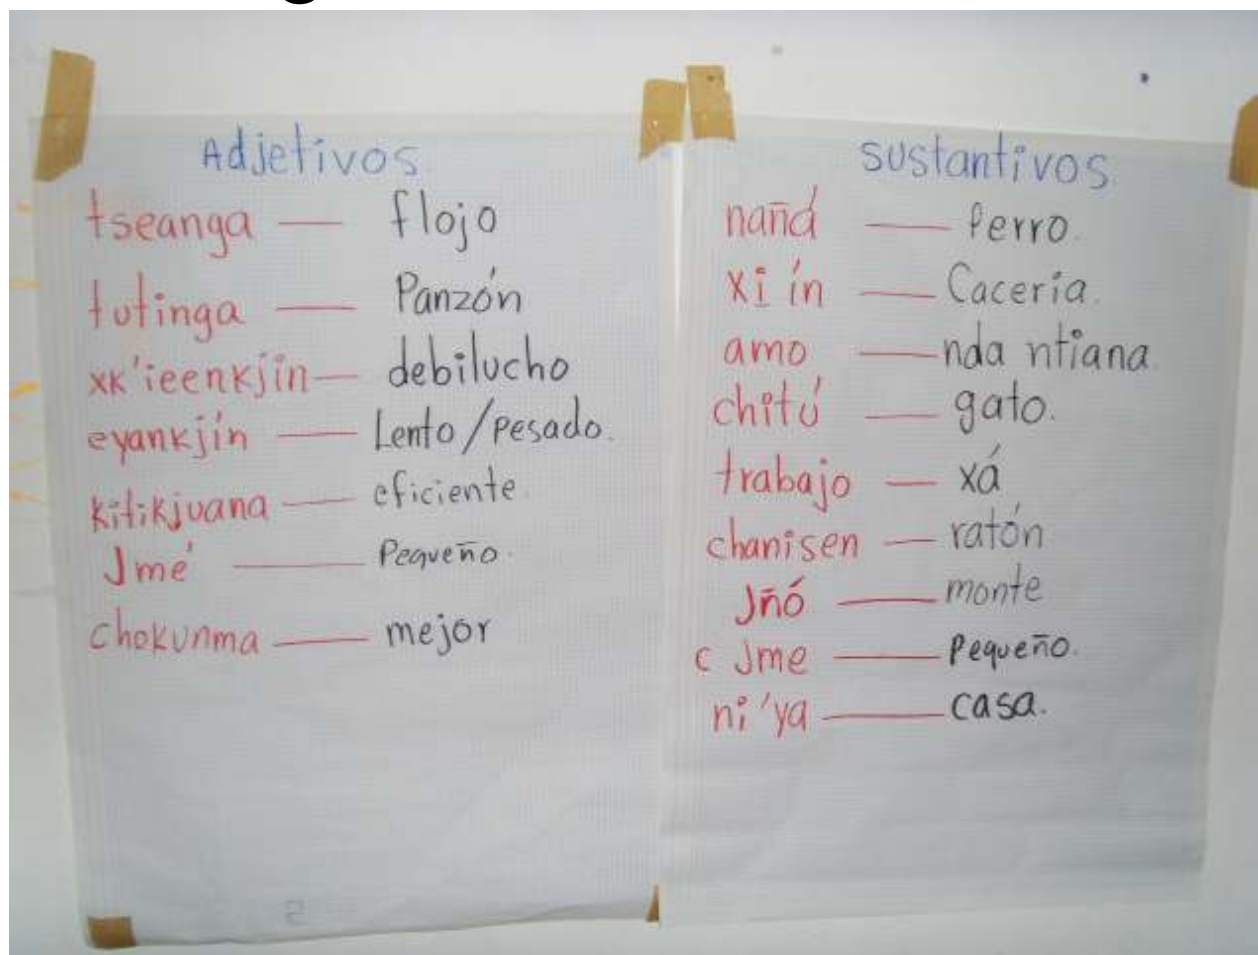 Adjetivos
tseanga — flojo
tutinga — Panzón
xk'ieenkjín — debilucho
eyankjín — Lento/pesado.
kitikjuana — eficiente.
Jmé — Pequeño.
chokunma — mejor
sustantivos
nañá — Perro.
xi ín — Cacería.
amo — nda ntiana.
chitú — gato.
trabajo — xá
chanisen — ratón
Jñó — monte
c Jme — Pequeño.
ni'ya — casa.